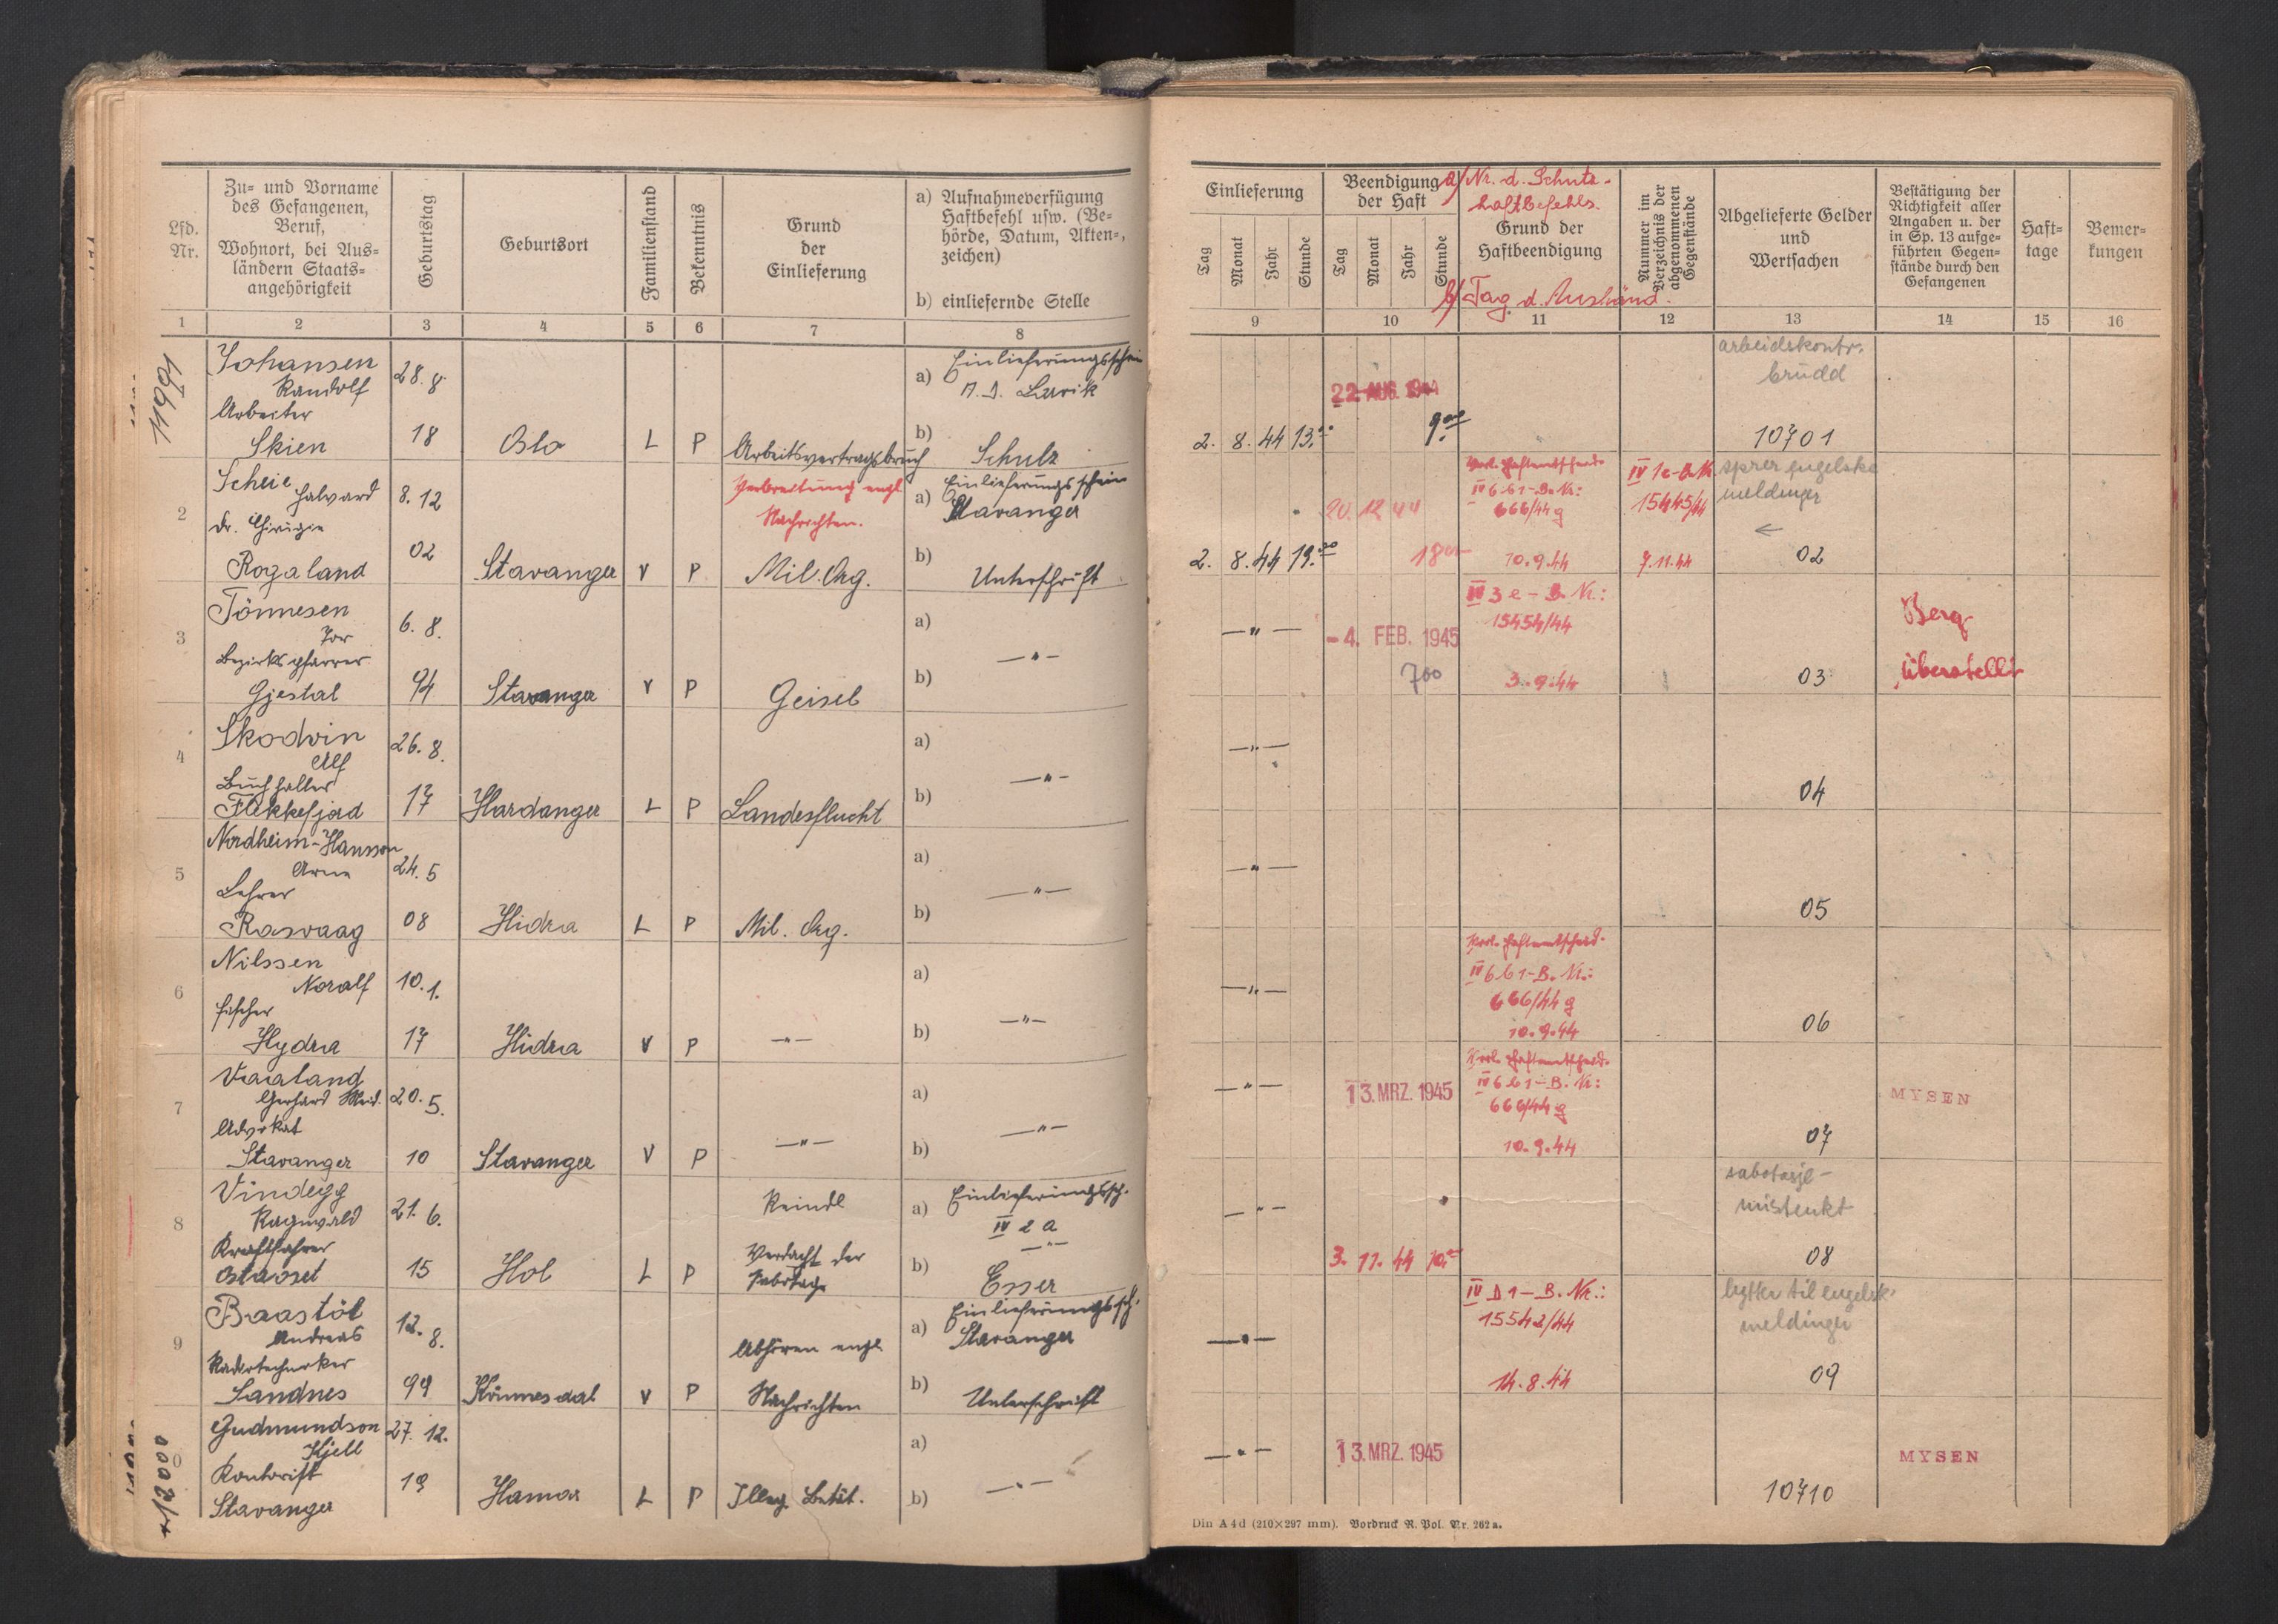 Lfd. Nr.
Zu= und Vorname
des Gefangenen,
Beruf,
Wohnort, bei Aus=
ländern Staats=
angehörigkeit
Geburtstag
Geburtsort
Familienstand
Bekenntnis
Grund
der
Einlieferung
a) Aufnahmeverfügung
Haftbefehl usw. (Be=
hörde, Datum, Akten=,
zeichen)
b) einliefernde Stelle
1 2 3 4 5 6 7 8
11991
Johansen
Randolf
28. 8.
Arbeiter
Skien
18
Oslo
L
P
Arbeitsvertragsbruch
a) Einlieferungsschein
Larvik
b)
Schulz
2
Scheie
Halvard
8. 12
Dr. Chirurgie
Rogaland
02
Stavanger
V
P
Verbreitung engl.
Nachrichten.
Mil. Org.
a) Einlieferungsschein
Stavanger
b)
Unterschrift
3
Tönnesen
Tor
6. 8.
Bezirkspfarrer
Gjestal
94
Stavanger
V
P
Geisel
a)
— " —
b)
4
Skodvin
Alf
26. 8.
Buchhalter
Flekkefjord
17
Hardanger
L
P
Landesflucht
a)
— " —
b)
5
Nordheim-Hansson
Arne
24. 5
Lehrer
Rasvaag
08
Hidra
L
P
Mil. Org.
a)
— " —
b)
6
Nilssen
Noralf
10. 1.
Fischer
Hydra
17
Hidra
V
P
— " —
a)
— " —
b)
7
Vaaland
Gerhard
20. 5.
Advokat
Stavanger
10
Stavanger
V
P
— " —
a)
— " —
b)
8
Vindegg
Ragnvald
21. 6.
Kraftfahrer
Ustaoset
15
Hol
L
P
Reindl
Verdacht der
Sabotage
a) Einlieferungssch.
IV 2 a
— " —
b)
Esser
9
Baastöl
Andreas
12. 8.
Radiotechniker
Sandnes
99
V
P
Abhören engl.
Nachrichten
a) Einlieferungssch.
Stavanger
b)
Unterschrift
0
Gudmundson
Kjell
27. 12.
Kontorist
Stavanger
19
Hamar
L
P
Illeg. Betät.
a)
— " —
b)
12000
Einlieferung
Tag
Monat
Jahr
Stunde
Beendigung
der Haft
Tag
Monat
Jahr
Stunde
a) Nr. d. Schutz-
haftbefehls.
Grund der
Haftbeendigung
b) Tag d. Aushänd.
Nummer im
Verzeichnis der
abgenommenen
Gegenstände
Abgelieferte Gelder
und
Wertsachen
Bestätigung der
Richtigkeit aller
Angaben u. der
in Sp. 13 aufge=
führten Gegen=
stände durch den
Gefangenen
Haft=
tage
Bemer=
kungen
9 10 11 12 13 14 15 16
arbeidskontr.
brudd
22. AUG. 1944
2. 8. 44 13.00
9.00
10701
Vorl. Haftentscheid.
IV 6 b 1 - B. Nr.:
666/44 g
10. 9. 44
IV 1c - B. Nr.
15445/44
7. 11. 44
sprer engelske
meldinger
←
20. 12 44
2. 8. 44 19.00
18.00
02
IV 3 e - B. Nr.:
15454/44
3. 9. 44
— " —
- 4. FEB. 1945
7.00
03
Berg
überstellt
— " —
04
— " —
05
Vorl. Haftentscheid.
IV 6 b 1 - B. Nr.:
666/44 g
10. 9. 44
— " —
06
Vorl. Haftentscheid.
IV 6 b 1 - B. Nr.:
666/44 g
10. 9. 44
— " —
13. MRZ. 1945
07
MYSEN
sabotasje-
mistenkt
— " —
3. 11. 44 10.00
08
IV D 1 - B. Nr.:
15542/44
14. 8. 44
lytter til engelsk.
meldinger
— " —
09
— " —
13. MRZ. 1945
10710
MYSEN
Din A 4 d (210×297 mm). Vordruck R. Pol. Nr. 262 a.